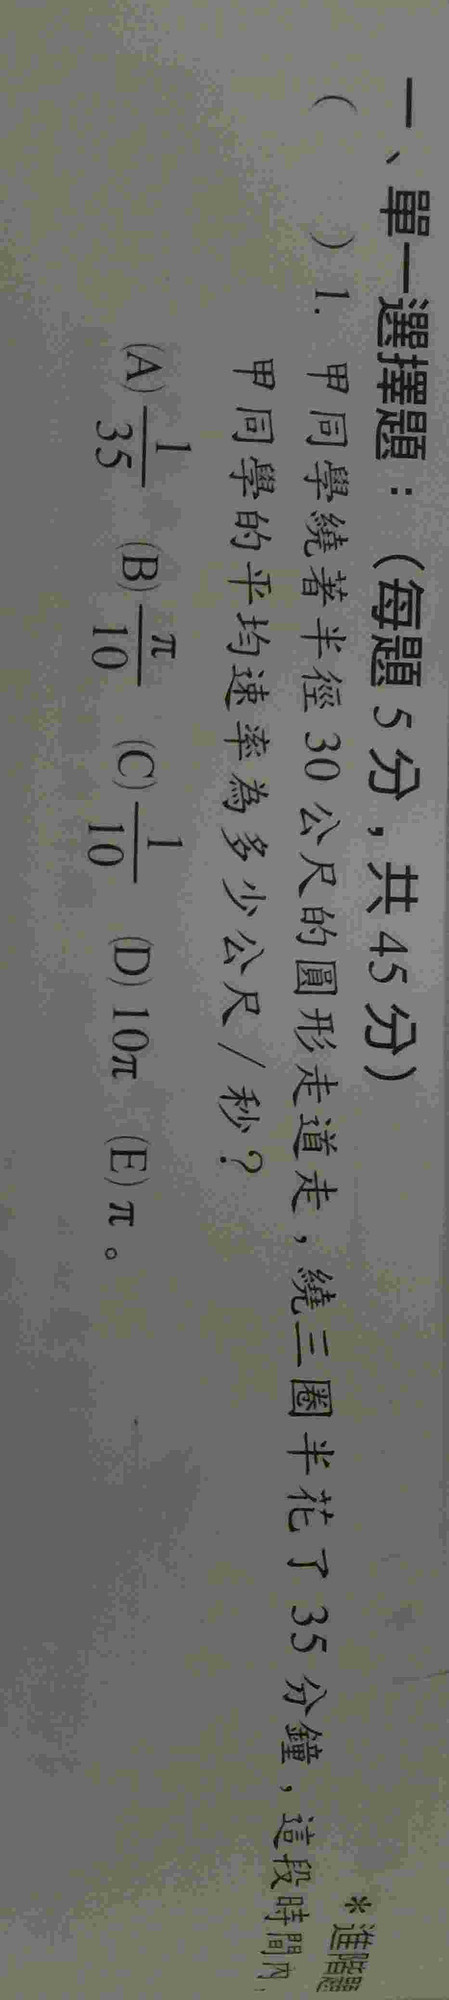 *進階題
一、單一選擇題：（每題 5 分，共 45 分）
（　　）1. 甲同學繞著半徑 30 公尺的圓形走道走，繞三圈半花了 35 分鐘，這段時間內，
甲同學的平均速率為多少公尺／秒？
(A) 1/35 (B) π/10 (C) 1/10 (D) 10π (E) π。